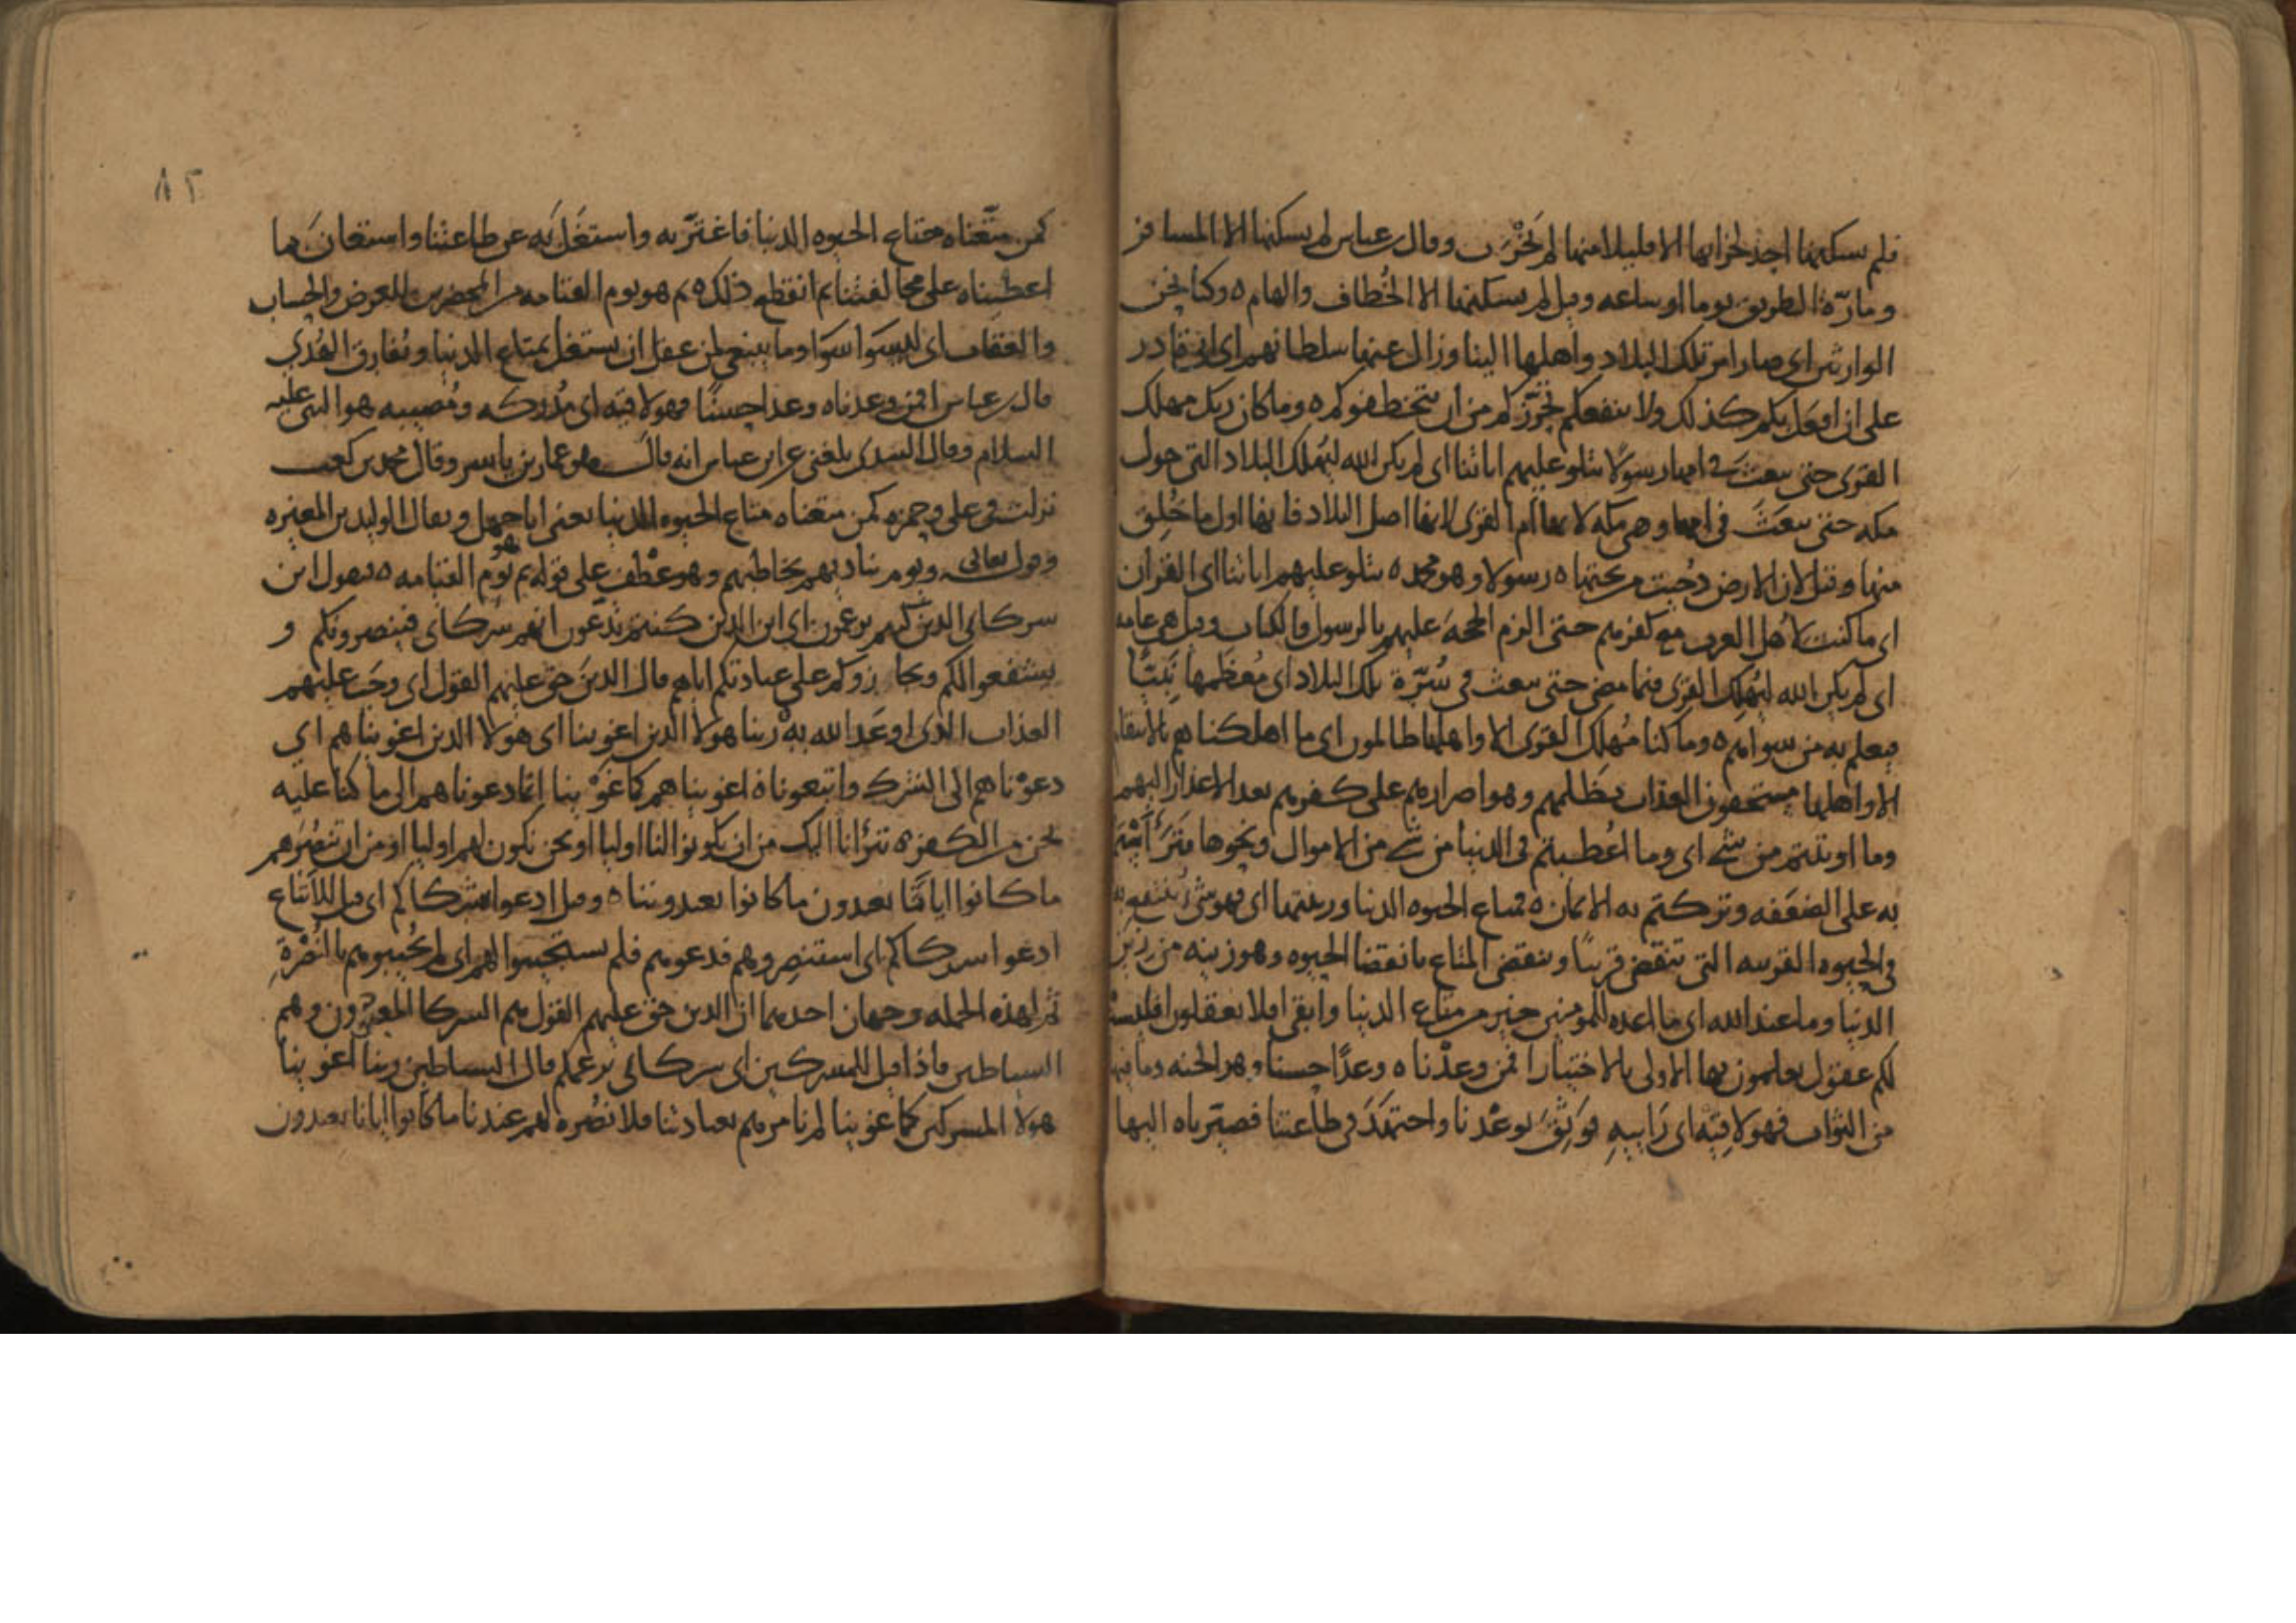 فلم يسكنها احد لخرابها الا قليلا منها لم يخرب وقال ابن عباس لم يسكنها الا المسافر
ومارة الطريق يوما او ساعه وقيل لم يسكنها الا الخطاف والهام ه وكنا نحن
الوارثين اي صار امر تلك البلاد واهلها الينا وزال عنها سلطانهم اي اني قادر
على ان افعل بكم كذلك ولا ينفعكم تحرزكم من ان تتخطفوكم ه وما كان ربك مهلك
القرى حتى يبعث في امها رسولا يتلو عليهم اياتنا اي لم يكن الله ليهلك البلاد التي حول
مكه حتى يبعث في امها وهي مكه لانها ام القرى لانها اصل البلاد فانها اول ما خلق
منها وقيل لان الارض دحيت من تحتها ه رسولا وهو محمد ه يتلو عليهم اياتنا اي القران
اي ما كنت لاهلك العرب مع كفرهم حتى الزم الحجه عليهم بالرسول والكتاب وقيل هي عامه
اي لم يكن الله ليهلك القرى فيما مضى حتى يبعث في سرة تلك البلاد اي معظمها نبيا
فيعلم به من سواهم ه وما كنا مهلكي القرى الا واهلها ظالمون اي ما اهلكناهم بالانتقام
الا واهلها مستحقون العذاب بظلمهم وهو اصرارهم على كفرهم بعد الاعذار اليهم
وما اوتيتم من شي اي وما اعطيتم في الدنيا من شي من الاموال ونحوها
به على الضعفه وتركتم به الايمان ه فمتاع الحيوه الدنيا وزينتها اي فهو شي ينتفع به
في الحيوه القريبه التي تنقضي قريبا وينقضي المتاع بانقضا الحيوه وهو زينه من زين
الدنيا وما عند الله اي ما اعده للمومنين خير من متاع الدنيا وابقى افلا تعقلون افليست
لكم عقول تعلمون بها الاولى بالاختيار افمن وعدناه وعدا حسنا وهو الجنه وما فيها
من الثواب فهو لاقيه اي رابيه فوثق بوعدنا واجتهد في طاعتنا فصيرناه اليها
٨٢
كمن متعناه متاع الحيوه الدنيا فاغتر به واشتغل به عن طاعتنا واستعان بما
اعطيناه على مخالفتنا ثم انقطع ذلك ه ثم هو يوم القيامه من المحضرين للعرض والحساب
والعقاب اي ليسوا سوا وما ينبغي لمن عقل ان يشتغل بمتاع الدنيا ويفارق الهدى
قال ابن عباس افمن وعدناه وعدا حسنا فهو لاقيه اي مدركه ومصيبه هو النبي عليه
السلام وقال السدي بلغني عن ابن عباس انه قال هو عمار بن ياسر وقال محمد بن كعب
نزلت في علي وحمزه كمن متعناه متاع الحيوه الدنيا يعني ابا جهل ويقال الوليد بن المغيره
وقول تعالى ويوم يناديهم يخاطبهم وهو عطف على قوله ثم هو يوم القيامه ه فيقول اين
شركائي الذين كنتم تزعمون اي اين الذين كنتم تدعون انهم شركاي فينصرونكم و
يشفعوا لكم ويجازوكم على عبادتكم اياهم قال الذين حق عليهم القول اي وجب عليهم
العذاب الذي اوعد الله به ربنا هولا الذين اغوينا اي هولا الذين اغويناهم اي
دعوناهم الى الشرك واتبعونا ه اغويناهم كما غوينا انما دعوناهم الى ما كنا عليه
نحن من الكفر ه تبرأنا اليك من ان يكونوا لنا اوليا او نحن نكون لهم اوليا او من ان تنصرهم
ما كانوا ايانا يعبدون ما كانوا يعبدوننا ه وقيل ادعوا شركاكم اي قيل للاتباع
ادعوا شركاكم اي استنصروهم فدعوهم فلم يستجيبوا لهم اي لم يجيبوهم بالنصرة
ثم لهذه الجمله وجهان احدهما ان الذين حق عليهم القول هم الشركا وهم
الشياطين فاذا قيل للمشركين اين شركائي بزعمكم قال الشياطين ربنا اغوينا
هولا المشركين كما غوينا لم نامرهم بعبادتنا فلا نصره لهم عندنا ما كانوا ايانا يعبدون